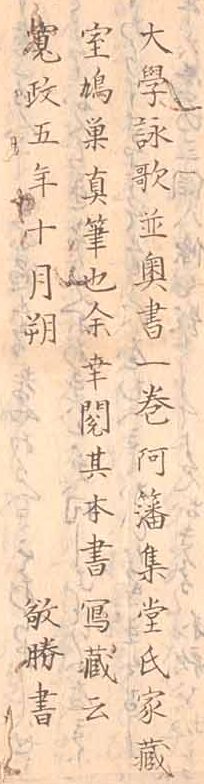 大學詠歌並奧書一巻阿籓集堂氏家藏
室鳩巣真筆也余幸閲其本書寫藏云
寛政五年十月朔　敏勝書